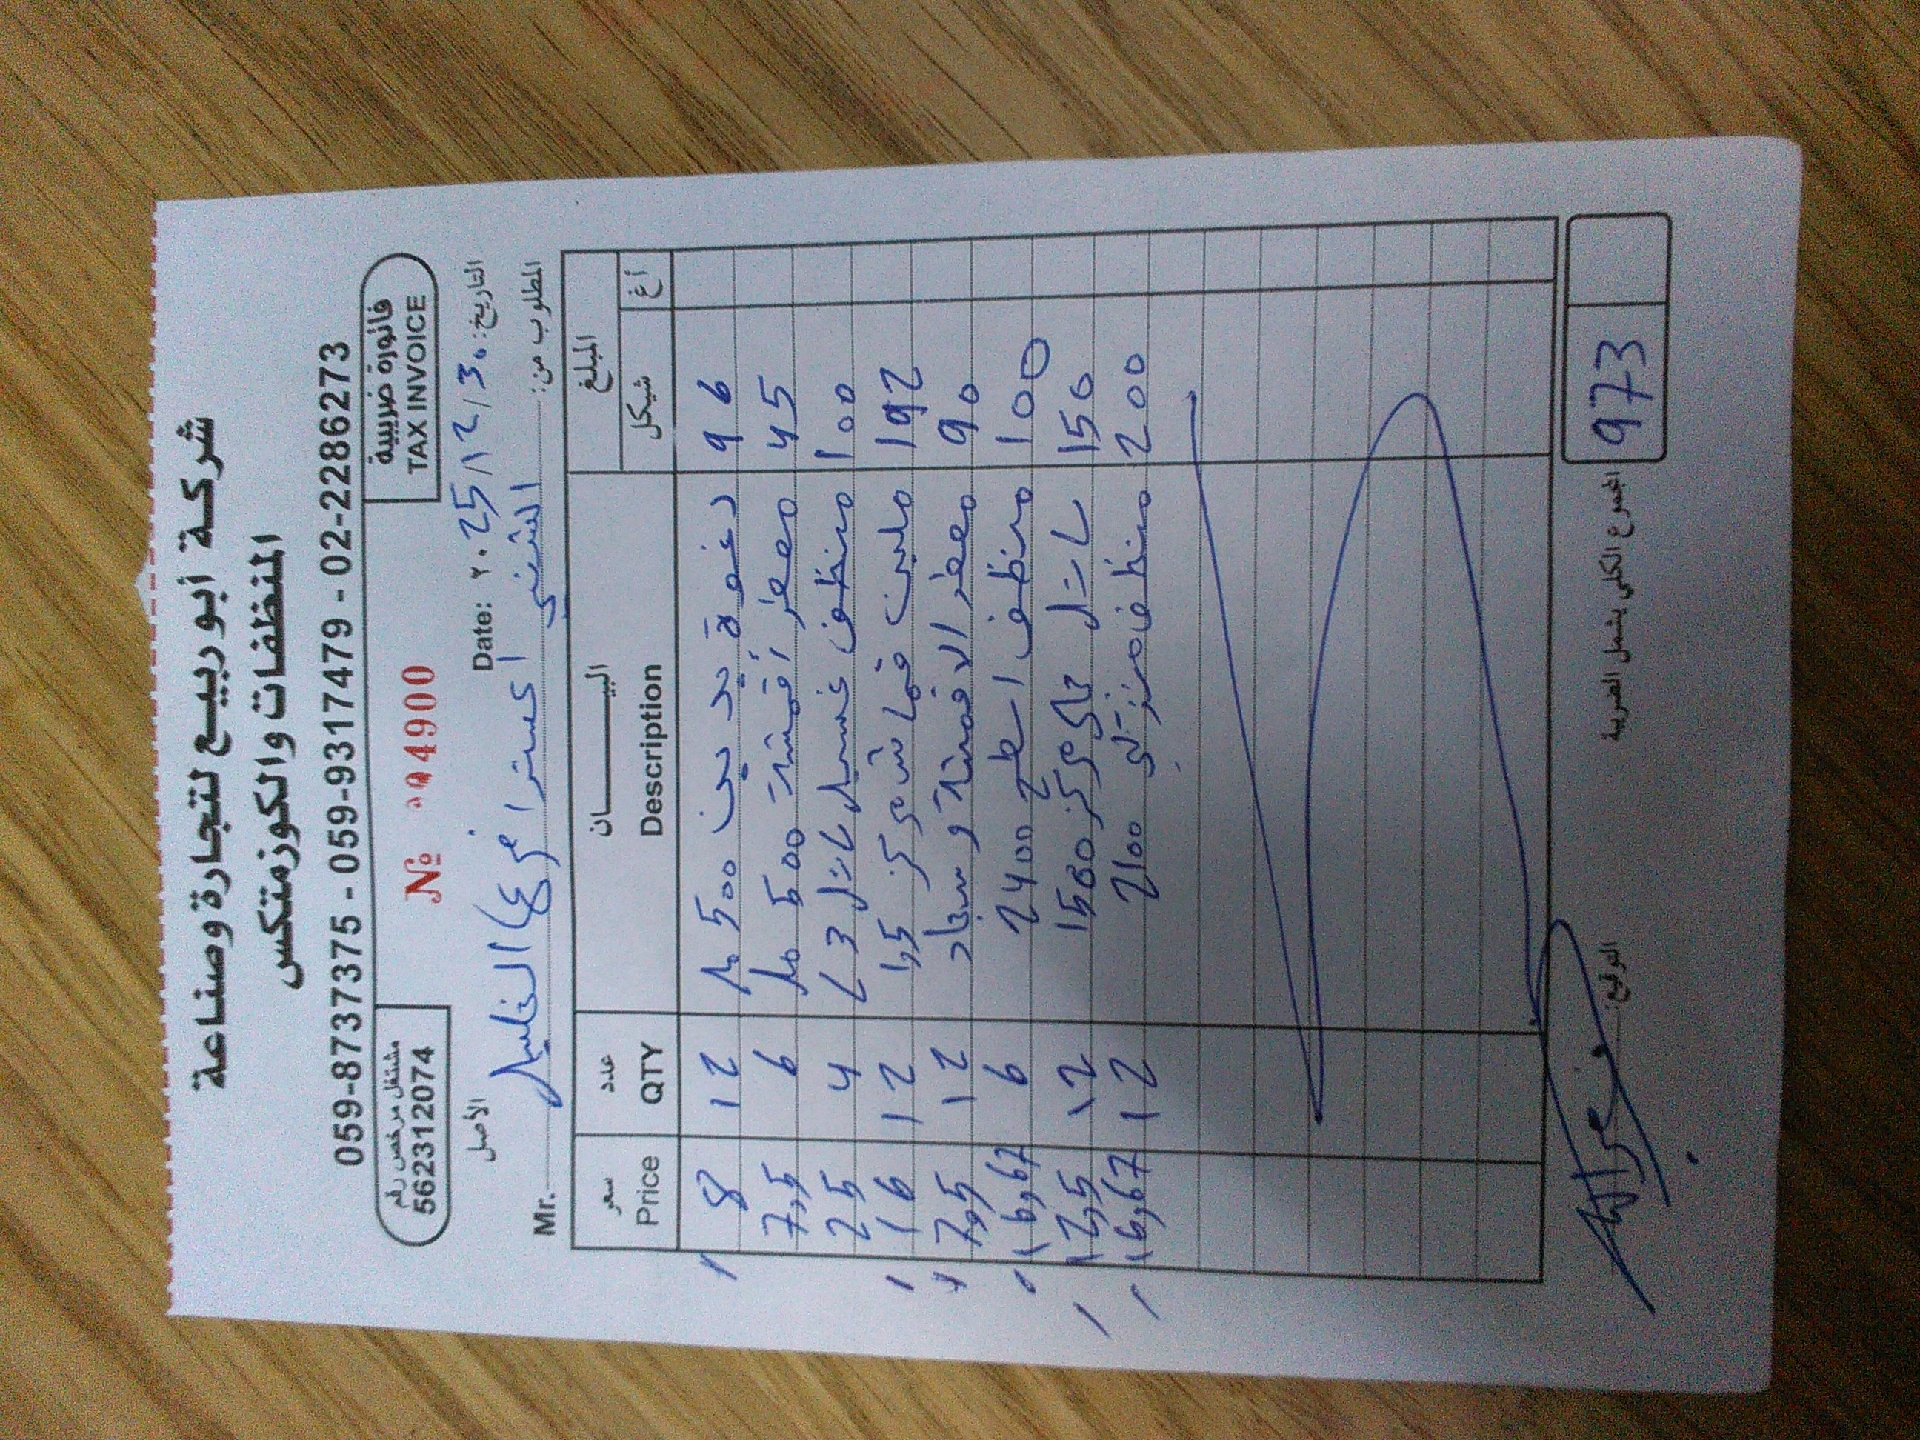 شركة أبو ربيع لتجارة وصناعة
المنظفات والكوزمتكس
059-8737375 - 059-9317479 - 02-2286273
مشتغل مرخص رقم
562312074
№ 004900
فاتورة ضريبية
TAX INVOICE
الأصل
Date: ٢٠25/12/30 التاريخ:
Mr. اكسترا فرع الخليل المطلوب من:
سعر Price عدد QTY البيـــــــان Description المبلغ شيكل أغ
8 12 رغوة يدين 500 مل 96
7,5 6 معطر أقمشة 500 مل 45
25 4 منظف غسيل باتل 3 L 100
16 12 ملين قماش مركز 1,5 192
7,5 12 معطر الاقمشة و سجاد 90
16,67 6 منظف اسطح 2400 100
12,5 12 باتل جلي مركز 1500 150
16,67 12 منظف منزلي 2100 200
التوقيع:
المجموع الكلي يشمل الضريبة 973